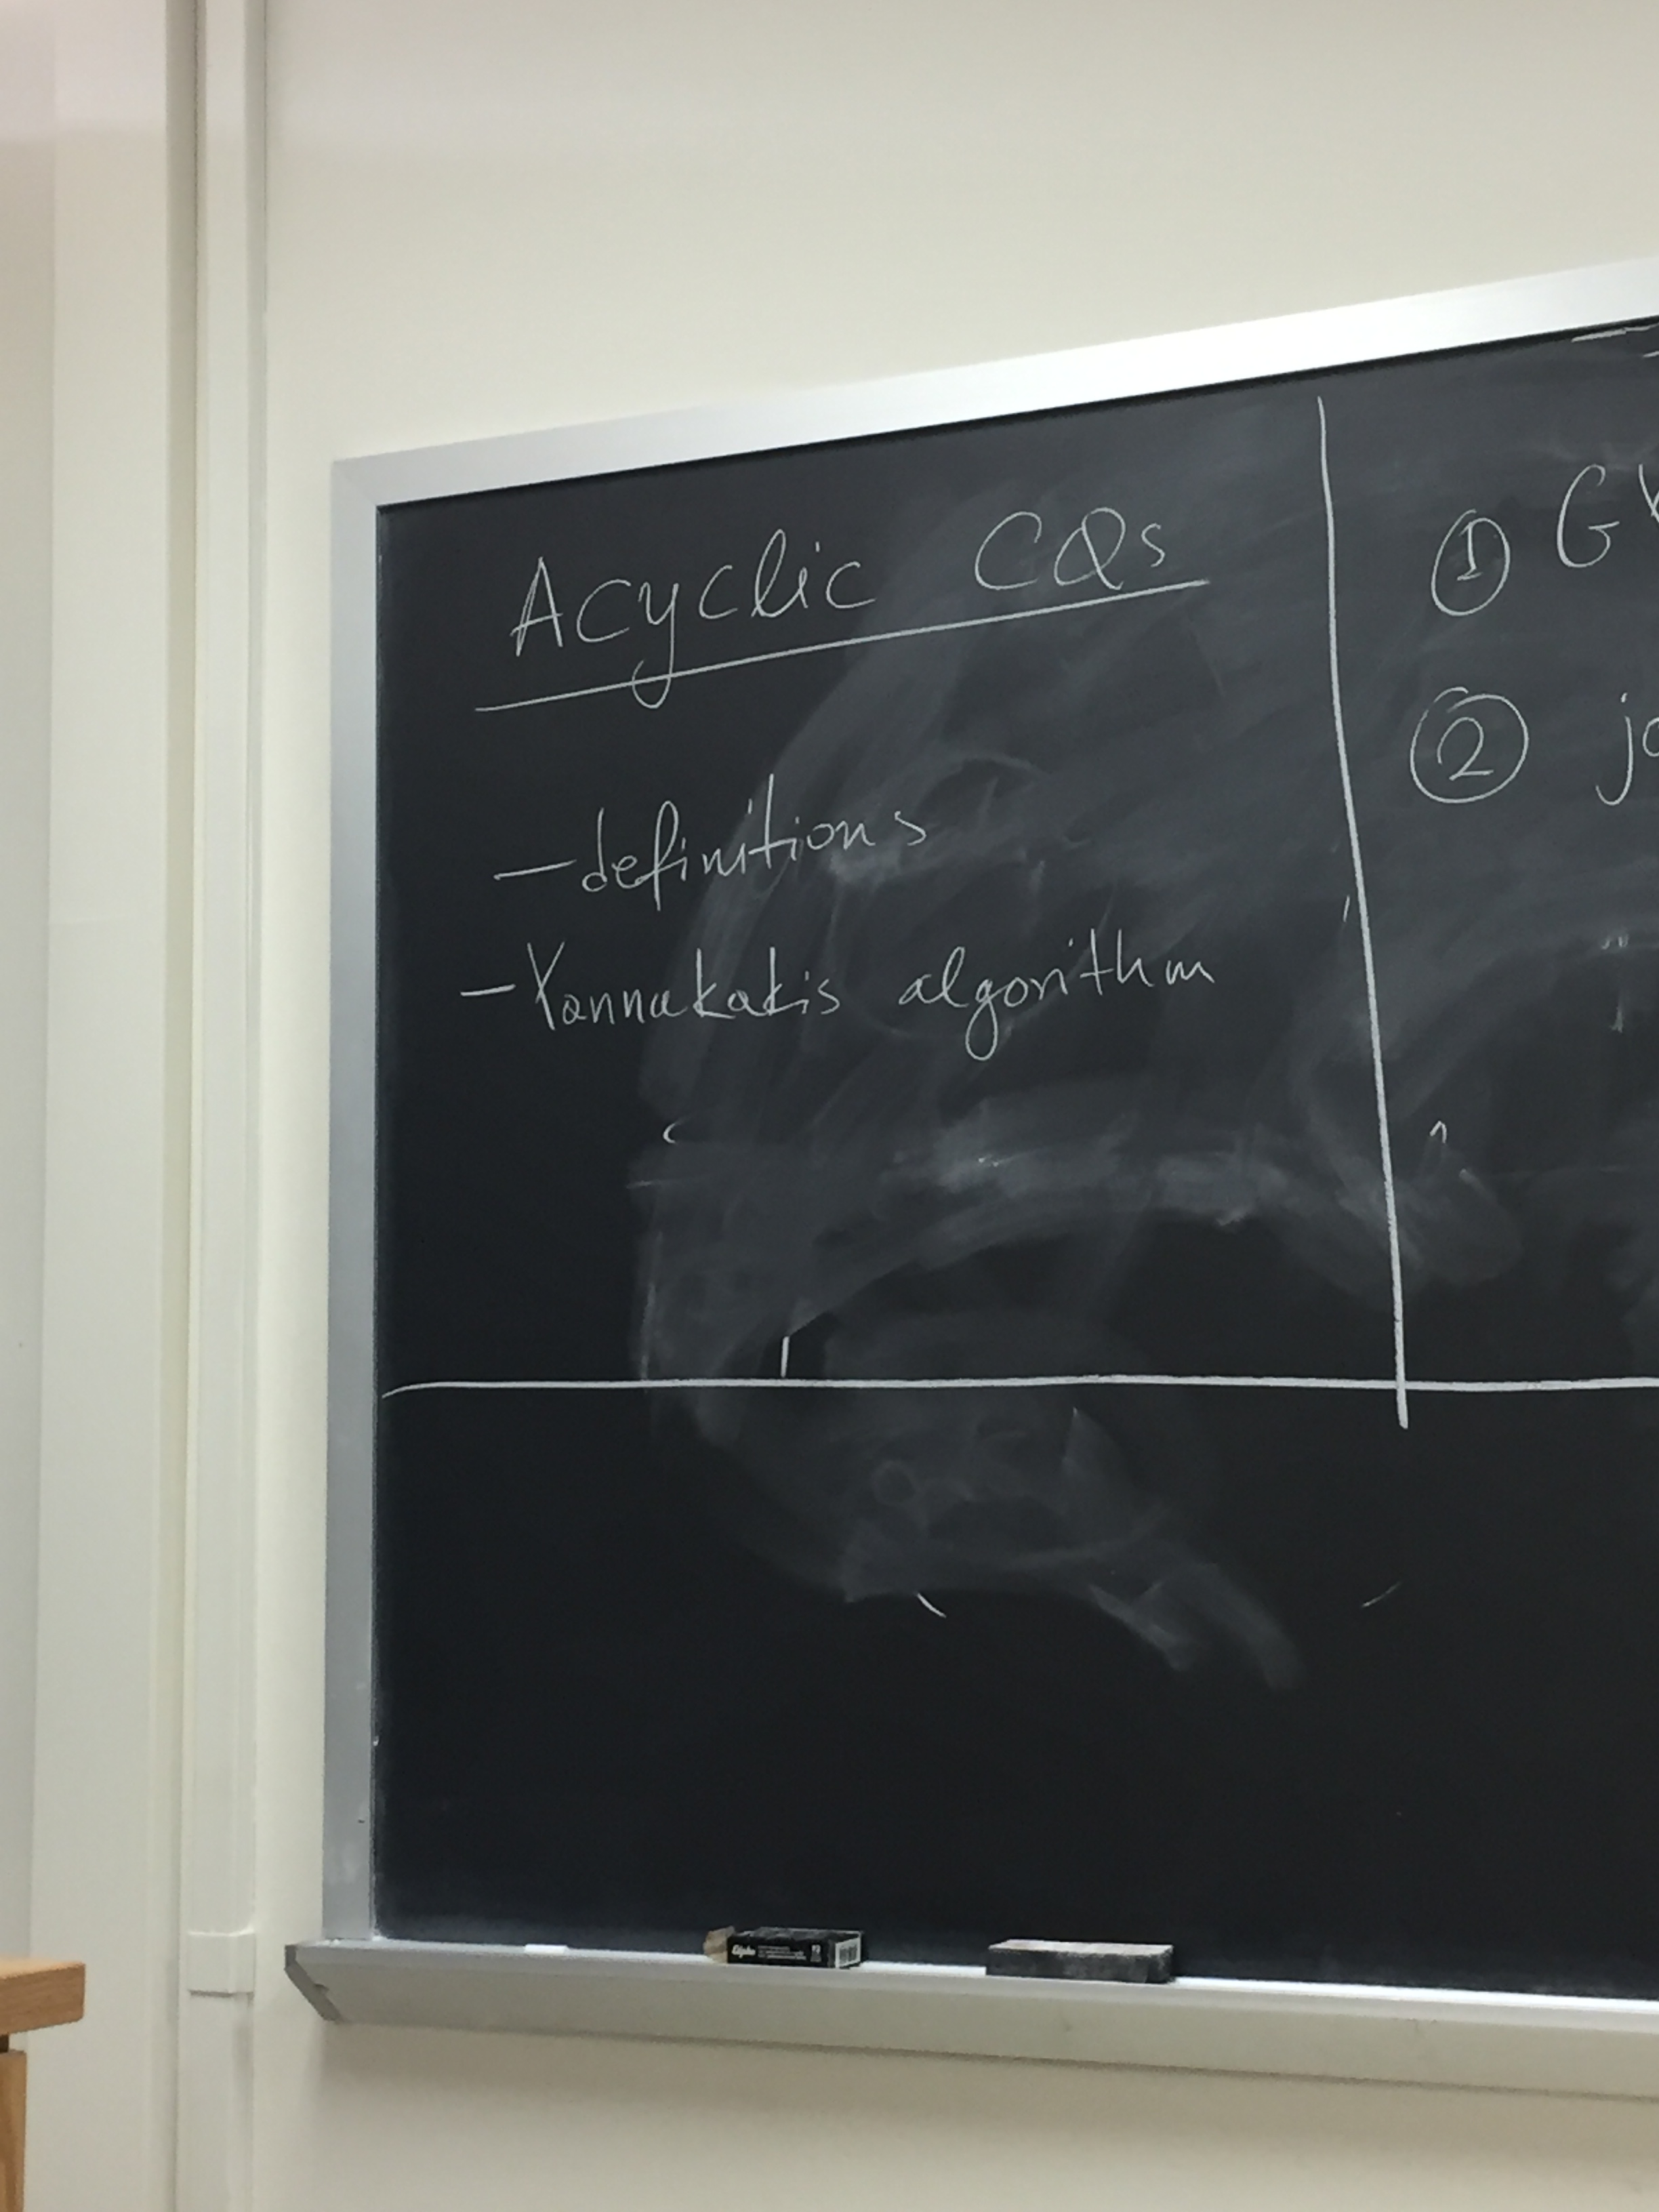 Acyclic CQs
- definitions
- Yannakakis algorithm
①
②